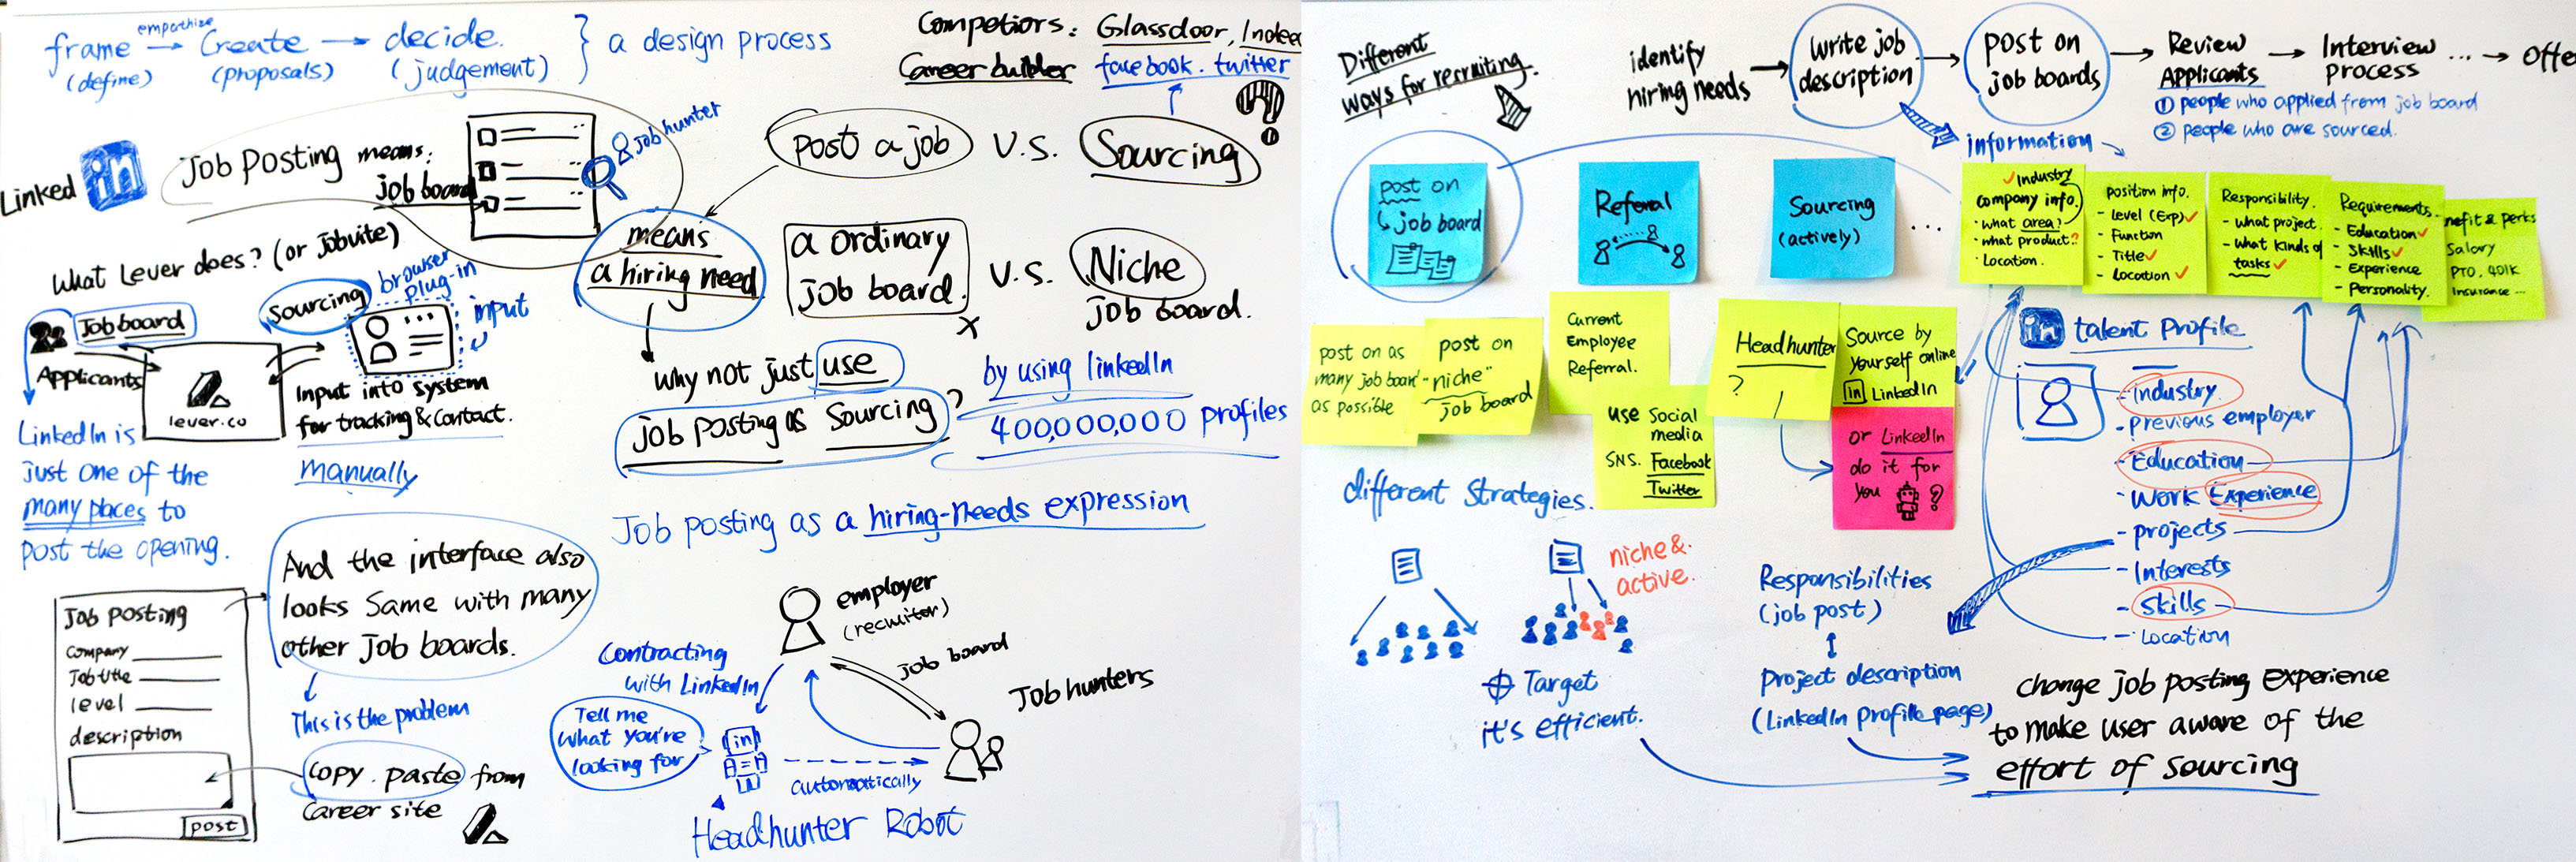 frame → create → decide. } a design process
empathize
(define) (proposals) (judgement)
Competiors: Glassdoor, Indeed
Career builder facebook. twitter
Linked in
Job Posting means:
job board
Job hunter
post a job V.S. Sourcing ?!
means
a hiring need
a ordinary
job board. x
V.S.
Niche
job board.
What Lever does? (or Jobvite)
Job board
Applicants
lever.co
Sourcing
browser
plug-in
input
Input into system
for tracking & contact.
manually
LinkedIn is
just one of the
many places to
post the opening.
why not just use
job posting as Sourcing?
by using linkedIn
400,000,000 profiles
Job posting as a hiring-needs expression
Job posting
company
Job title
level
description
post
And the interface also
looks same with many
other job boards.
This is the problem
copy. paste from
career site
employer
(recruiter)
Contracting
with LinkedIn
Tell me
what you're
looking for
in
automatically
job board
Job hunters
Headhunter Robot
Different
ways for recruiting.
identify
hiring needs
write job
description
post on
job boards
Review
Applicants
① people who applied from job board
② people who are sourced.
Interview
process
... → Offe
information
post on
job board
Referral
Sourcing
(actively)
...
✓ Industry
company info.
· what area?
· what product?
· Location.
position info.
- Level (Exp) ✓
- Function
- Title ✓
- Location ✓
Responsibility.
- what project.
- what kinds of
tasks ✓
Requirements.
- Education ✓
- Skills ✓
- Experience
- Personality.
nefit & perks
Salary
PTO, 401K
Insurance ...
post on as
many job board
as possible
post on
"niche"
job board
Current
Employee
Referral.
use Social
media
SNS. Facebook
Twitter
Headhunter
?
Source by
yourself online
in LinkedIn
or LinkedIn
do it for
you ?
in talent Profile
- industry.
- previous employer
- Education
- Work Experience
- projects
- Interests
- skills
- Location
different strategies.
niche &
active.
Target
it's efficient.
Responsibilities
(job post)
Project description
(LinkedIn profile page)
change job posting experience
to make user aware of the
effort of sourcing